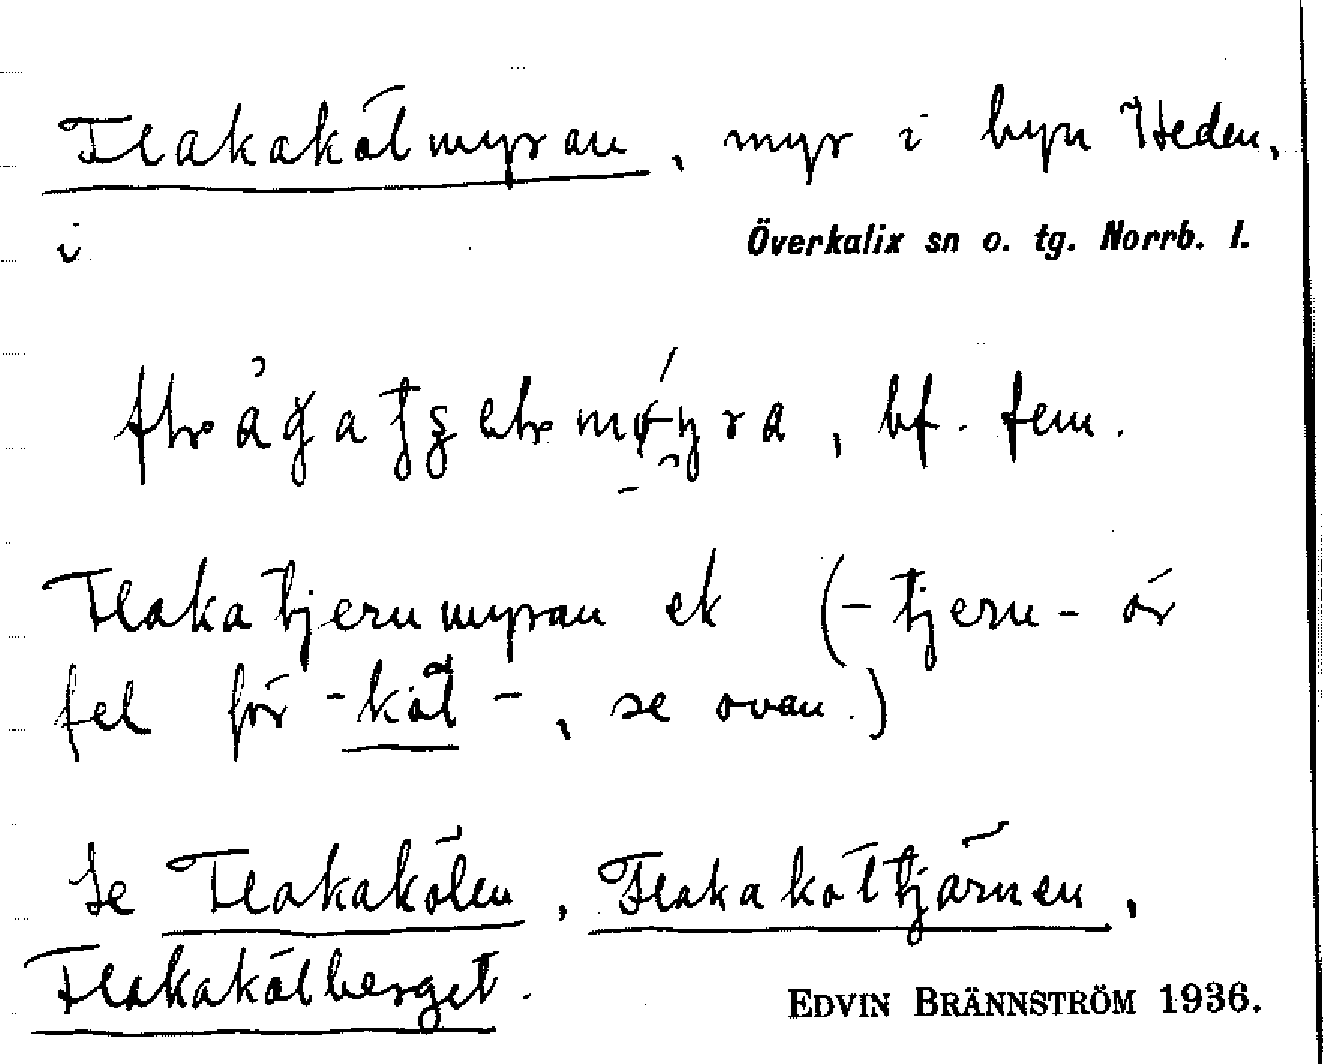 Flakakölmyran, myr i byn Heden,
i Överkalix sn o. tg. Norrb. l.
, bf. fem.
Flakatjernmyran ek (-tjern- är
fel för -köl-, se ovan.)
Se Flakakölen, Flakaköltjärnen,
Flakakölberget.
EDVIN BRÄNNSTRÖM 1936.